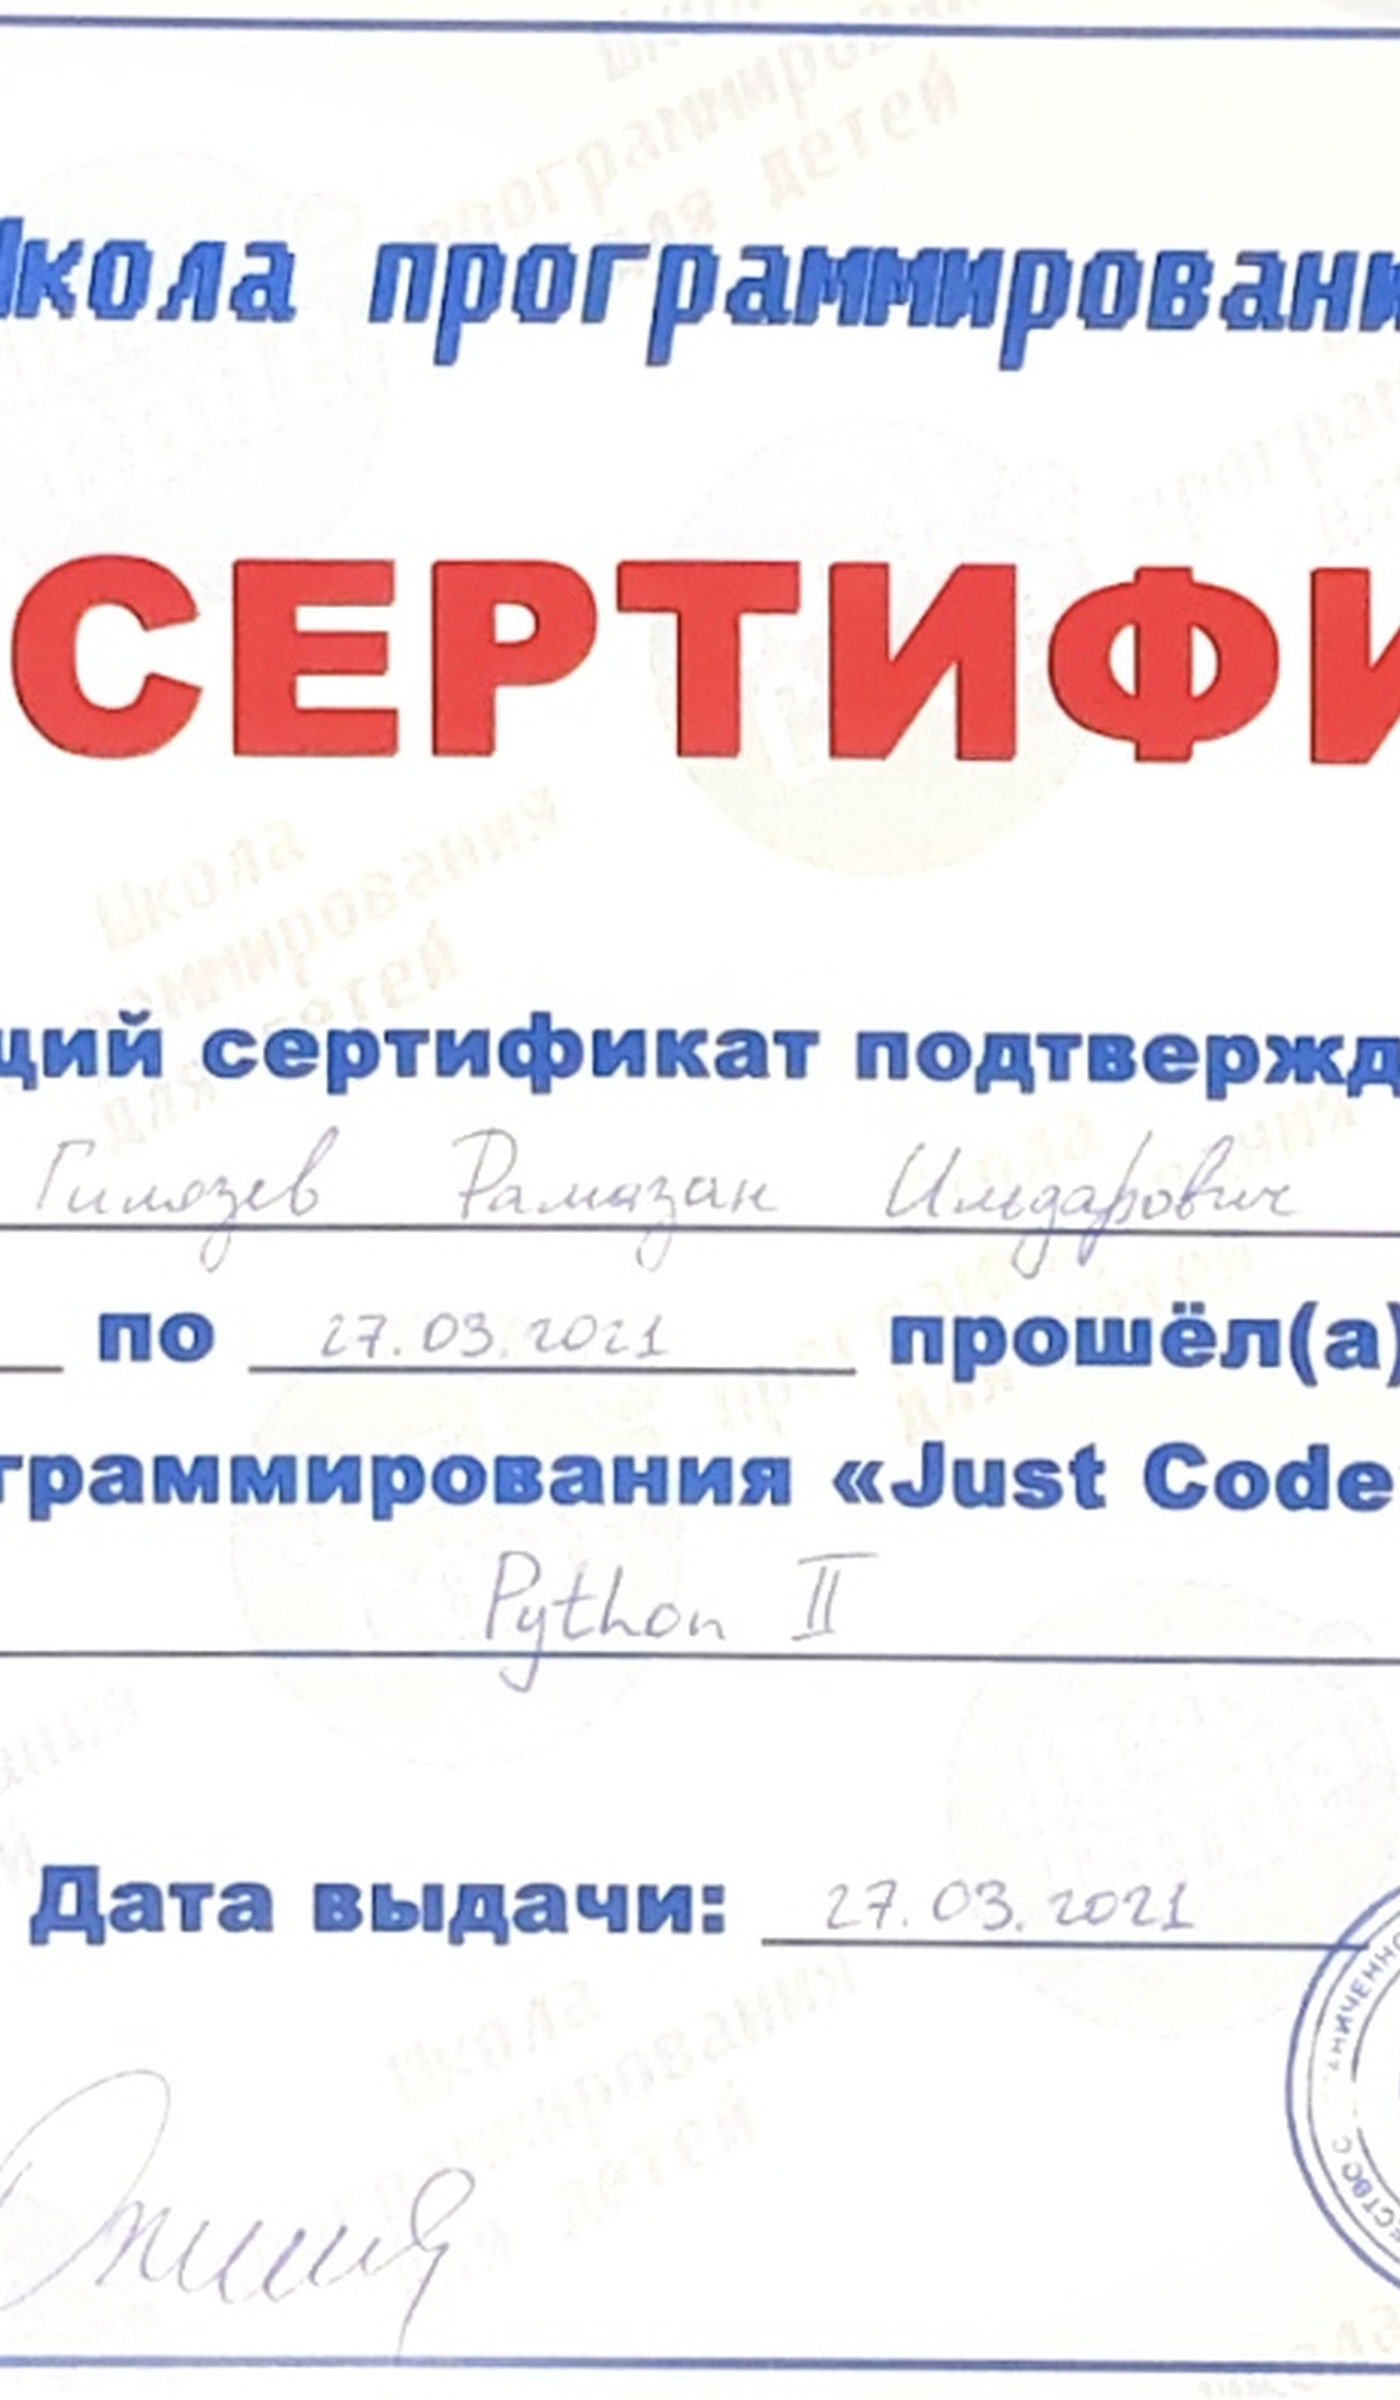 Школа программировани
СЕРТИФИ
щий сертификат подтвержд
Гилязев Рамазан Ильдарович
по 27.03.2021 прошёл(а)
граммирования «Just Code
Python II
Дата выдачи: 27.03.2021